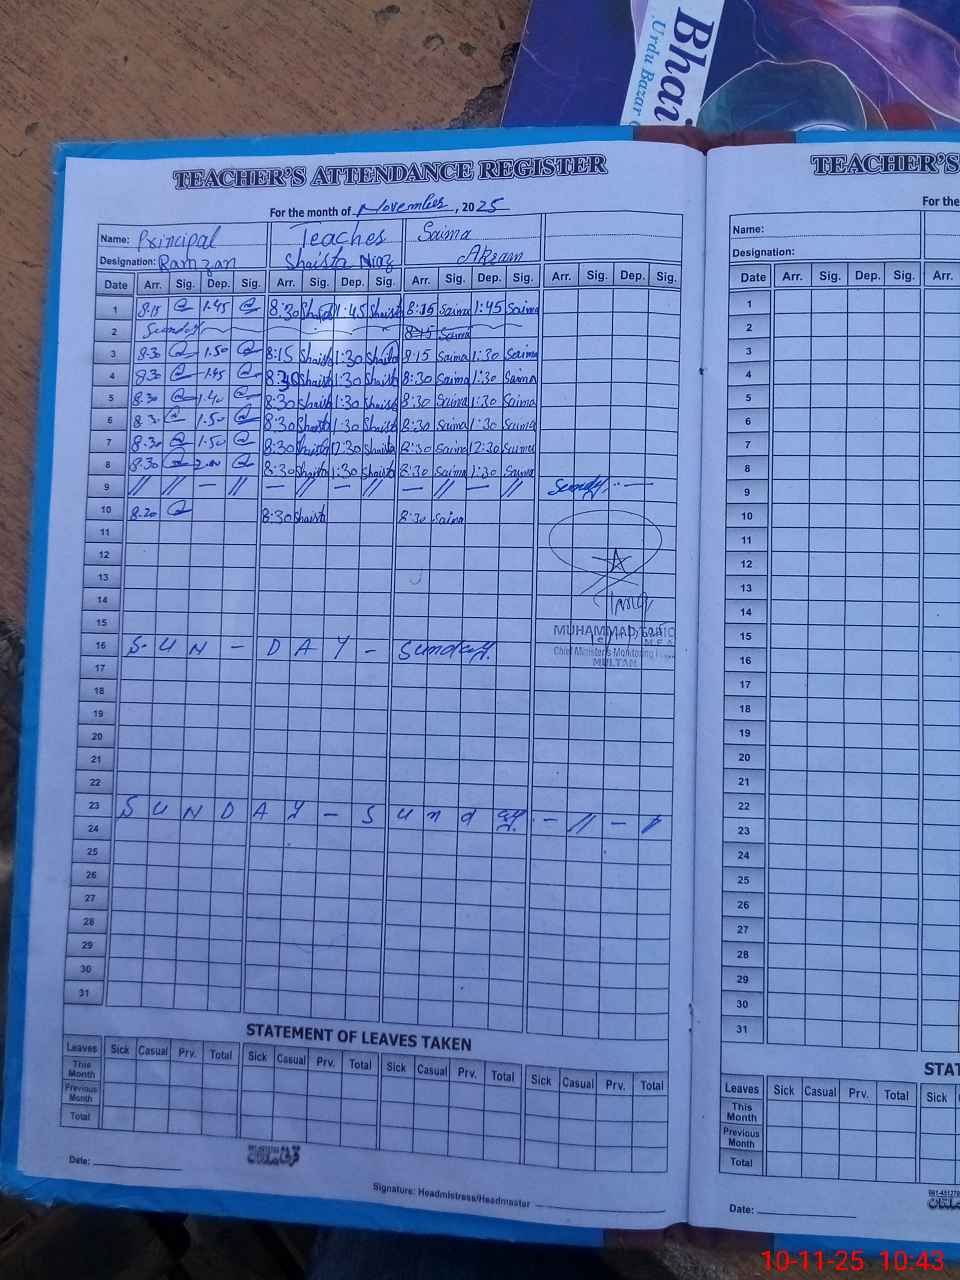 Bhai
Urdu Bazar
TEACHER'S ATTENDANCE REGISTER
For the month of November, 2025
Name: Principal Teacher Saima
Designation: Ramzan Shaista Niaz Akram
Date Arr. Sig. Dep. Sig. Arr. Sig. Dep. Sig. Arr. Sig. Dep. Sig. Arr. Sig. Dep. Sig.
1 8.15 1.45 8:30 Shaista 1:45 Shaista 8:15 Saima 1:45 Saima
2 Sunday 8:15 Saima
3 8.30 1.50 8:15 Shaista 1:30 Shaista 8:15 Saima 1:30 Saima
4 8.30 1.45 8:30 Shaista 1:30 Shaista 8:30 Saima 1:30 Saima
5 8.30 1.40 8:30 Shaista 1:30 Shaista 8:30 Saima 1:30 Saima
6 8.30 1.50 8:30 Shaista 1:30 Shaista 8:30 Saima 1:30 Saima
7 8.30 1.50 8:30 Shaista 12:30 Shaista 8:30 Saima 12:30 Saima
8 8.30 2.00 8:30 Shaista 1:30 Shaista 8:30 Saima 1:30 Saima
9 // // — // — // — // — // — // Sunday
10 8.20 8:30 Shaista 8:30 Saima
11
12
13
14
15
MUHAMMAD
Chief Minister's Monitoring
MULTAN
16 S U N - D A Y - Sunday
17
18
19
20
21
22
23 S U N D A Y - S u n d ay - // -
24
25
26
27
28
29
30
31
STATEMENT OF LEAVES TAKEN
Leaves Sick Casual Prv. Total Sick Casual Prv. Total Sick Casual Prv. Total Sick Casual Prv. Total
This Month
Previous Month
Total
Date:
Signature: Headmistress/Headmaster
TEACHER'S
For the
Name:
Designation:
Date Arr. Sig. Dep. Sig. Arr.
1
2
3
4
5
6
7
8
9
10
11
12
13
14
15
16
17
18
19
20
21
22
23
24
25
26
27
28
29
30
31
STAT
Leaves Sick Casual Prv. Total Sick
This Month
Previous Month
Total
Date:
10-11-25 10:43